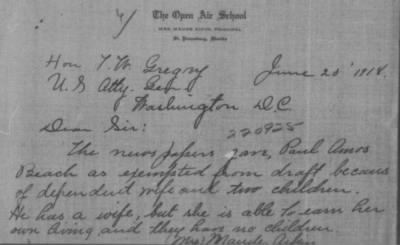 4/
The Open Air School
MRS. MAUDE AIKIN, PRINCIPAL
St. Petersburg, Florida
Hon T. W. Gregory June 20' 1918.
U. S Atty. Gen.
Washington D.C
Dear Sir:
220925
The news papers gave, Paul Amos
Beach as exempted from draft because
of dependent wife and two children.
He has a wife, but she is able to earn her
own living and they have no children.
(Mrs) Maude Aikin